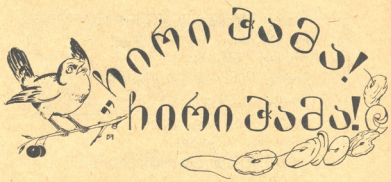 „ჩირი ჭამა!
ჩირი ჭამა!